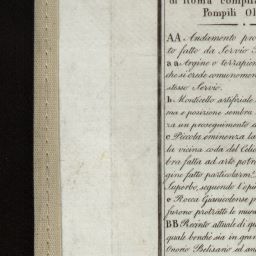 di Roma compil
Pompili Ol
AA Andamento pro
to fatto da Servio T
aa Argine o terrapien
che si crede comunemen
stesso Servio.
b Monticello artifiziale
ma e posizione sembra
za un proseguimento d
c Piccola eminenza la
la vicina coda del Celio
bra fatta ad arte potre
gine fatto particolarm.
Superbo, seguendo l'opi
e Rocca Gianicolense p
furono protratte le mura
BB Recinto attuale di qu
quale benchè sia in gran
Onorio Belisario ed an